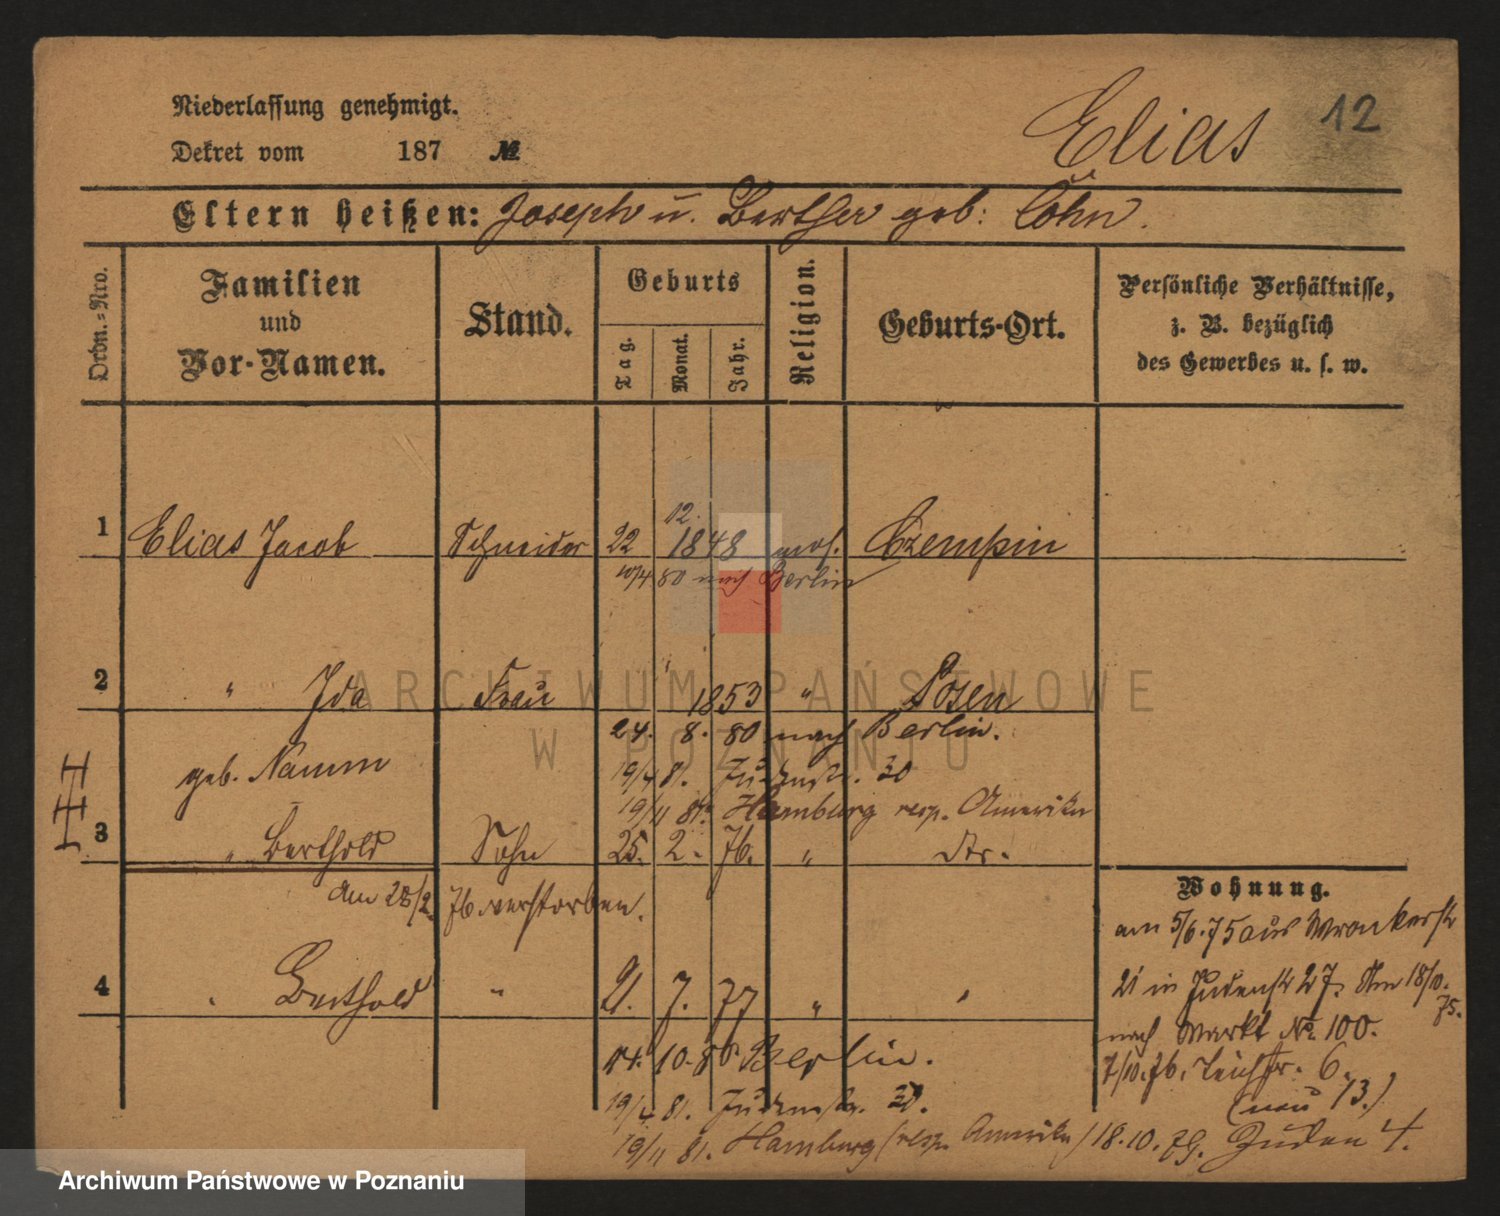 Niederlassung genehmigt.
Dekret vom 187 №
Elias 12
Eltern heißen: Joseph u. Bertha geb: Cohn.
Ordn.-Nro.
Familien und Vor-Namen.
Stand.
Geburts
Tag.
Monat.
Jahr.
Religion.
Geburts-Ort.
Persönliche Verhältnisse,
z. B. bezüglich
des Gewerbes u. s. w.
12.
1 Elias Jacob Schneider 22 1848 mos. Czempin
10/4 80 nach Berlin
2 " Ida Frau 1853 " Posen
24. 8. 80 nach Berlin.
geb. Namm
19/4 81. Judenstr. 30
19/11 81. Hamburg resp. Amerika
3 " Berthold Sohn 25. 2. 76. " do.
Wohnung.
am 28/2. 76. verstorben.
am 5/6.75 aus Wronkerstr
21 in Judenstr 27. Am 18/10.
75.
4 " Berthold " 21. 7. 77 " "
nach Markt No 100.
14. 10. 80 Berlin.
7/10.76. Teichstr. 6.
(neu 13.)
19/4 81. Judenstr. 30.
19/11 81. Hamburg (resp. Amerika) 18.10.79. Juden 4.
ARCHIWUM PAŃSTWOWE
W POZNANIU
Archiwum Państwowe w Poznaniu